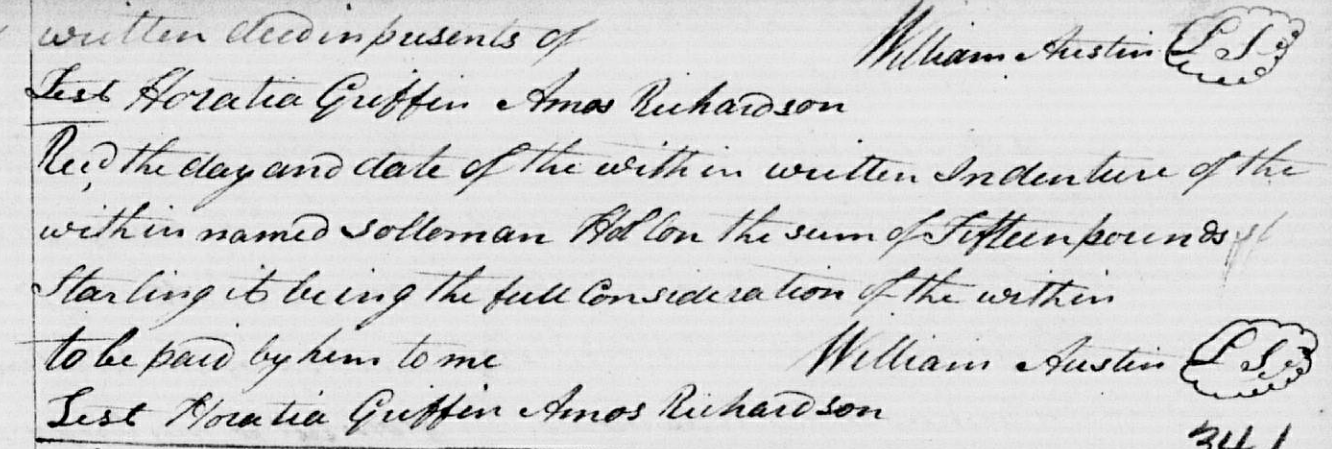 written deed in presents of William Austin L S
Test Horatia Griffin Amos Richardson
Recd the day and date of the within written Indenture of the
within named Solloman Hollon the sum of Fifteen pounds
Starling it being the full Consideration of the within
to be paid by him to me William Austin L S
Test Horatia Griffin Amos Richardson
341